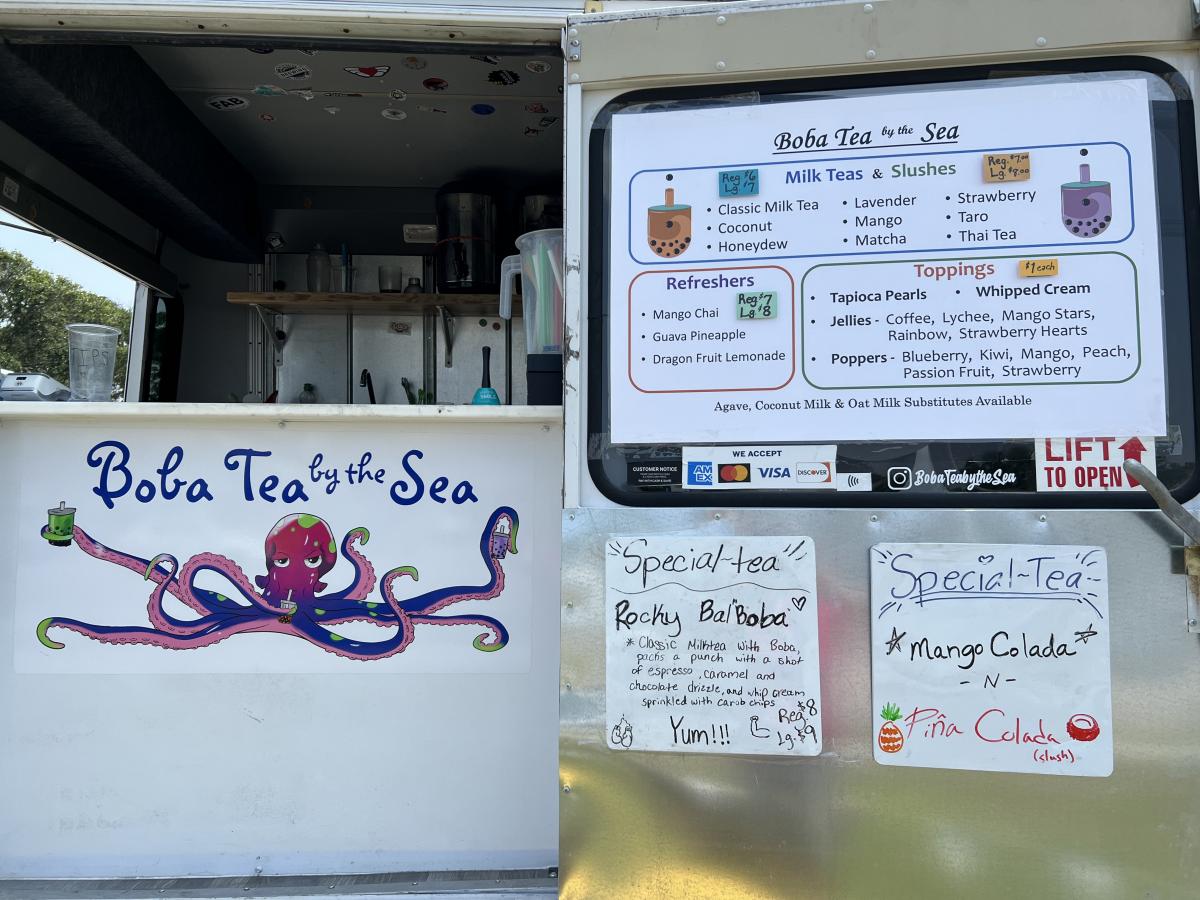 FAB
TIPS
Boba Tea by the Sea
Boba Tea by the Sea
Reg $6
Lg $7
Milk Teas & Slushes
Reg. $7.00
Lg. $8.00
• Classic Milk Tea
• Coconut
• Honeydew
• Lavender
• Mango
• Matcha
• Strawberry
• Taro
• Thai Tea
Refreshers
Reg $7
Lg $8
• Mango Chai
• Guava Pineapple
• Dragon Fruit Lemonade
Toppings
$1 each
• Tapioca Pearls • Whipped Cream
• Jellies - Coffee, Lychee, Mango Stars,
Rainbow, Strawberry Hearts
• Poppers - Blueberry, Kiwi, Mango, Peach,
Passion Fruit, Strawberry
Agave, Coconut Milk & Oat Milk Substitutes Available
CUSTOMER NOTICE
WE ACCEPT
AMEX
VISA
DISCOVER
BobaTeabytheSea
LIFT
TO OPEN
Special-tea
Rocky Bal"Boba"
* Classic Milktea with Boba,
packs a punch with a shot
of espresso, caramel and
chocolate drizzle, and whip cream
sprinkled with carob chips
Yum!!!
Reg. $8
Lg. $9
Special-Tea
Mango Colada
- N -
Piña Colada
(slush)